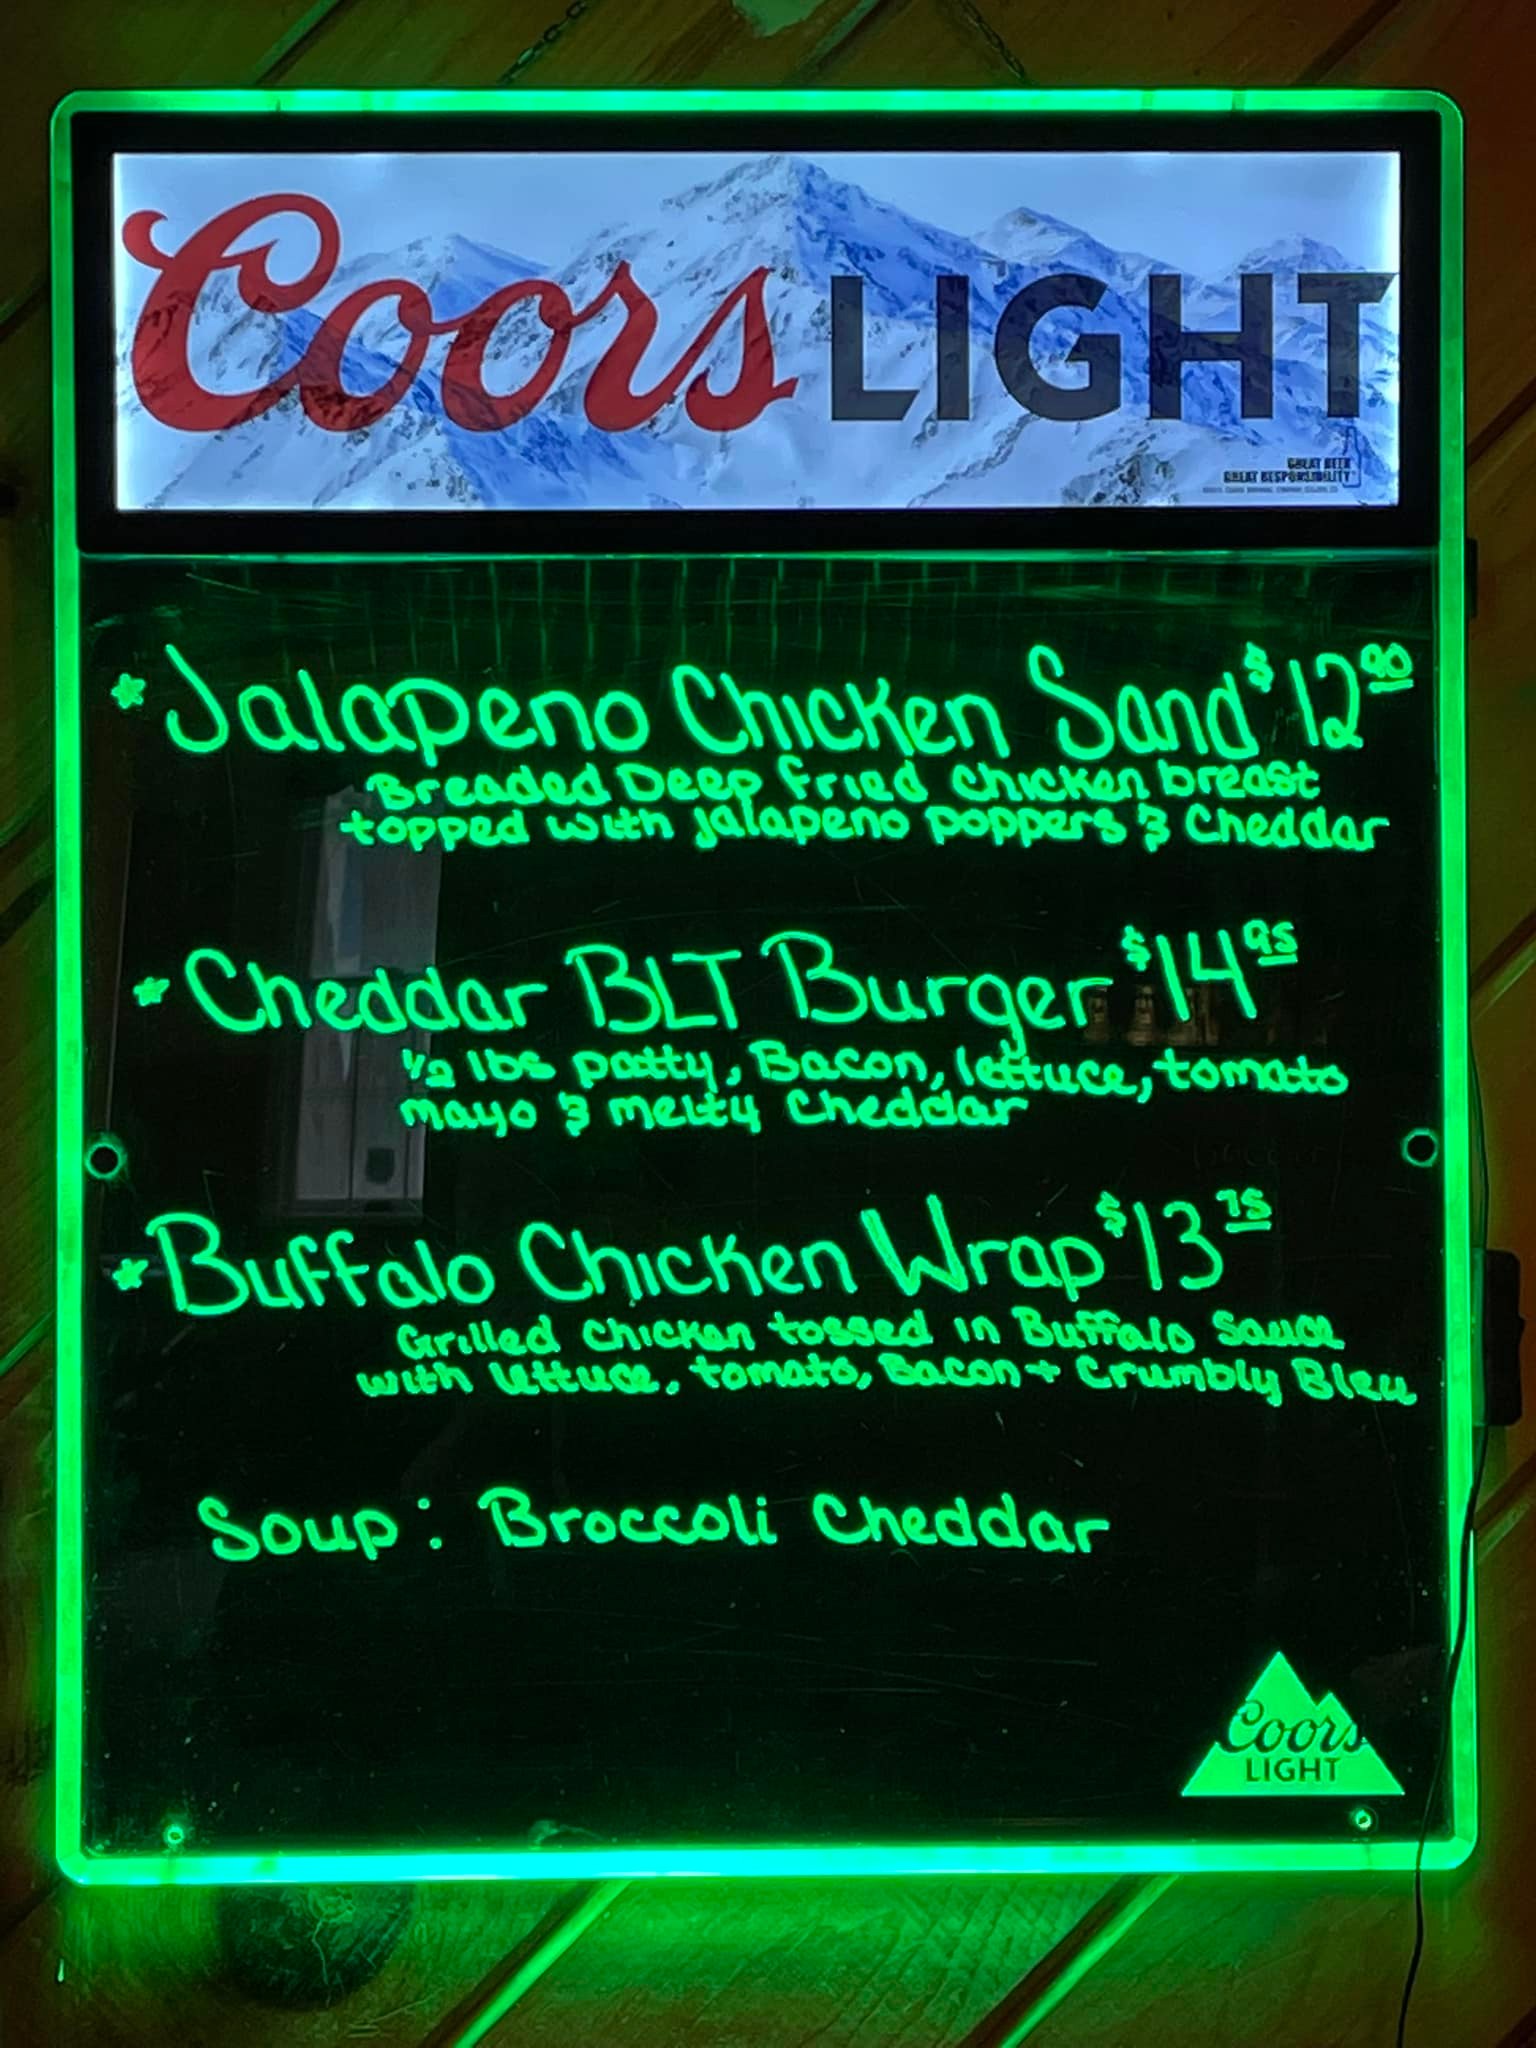 Coors LIGHT
GREAT BEER
GREAT RESPONSIBILITY
* Jalapeno Chicken Sand $12.90
Breaded Deep fried chicken breast
topped with jalapeno poppers & Cheddar
* Cheddar BLT Burger $14.95
1/2 lbs patty, Bacon, lettuce, tomato
mayo & melty cheddar
* Buffalo Chicken Wrap $13.75
Grilled chicken tossed in Buffalo Sauce
with lettuce, tomato, Bacon + Crumbly Bleu
Soup: Broccoli Cheddar
Coors
LIGHT